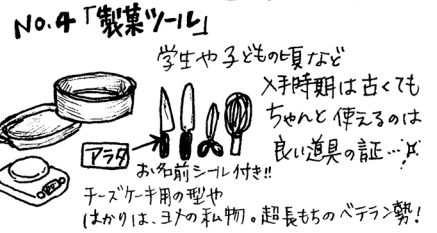 NO.4「製菓ツール」
学生や子どもの頃など
入手時期は古くても
ちゃんと使えるのは
良い道具の証…!
アラタ
お名前シール付き!!
チーズケーキ用の型や
はかりは、ヨメの私物。超長もちのベテラン勢!